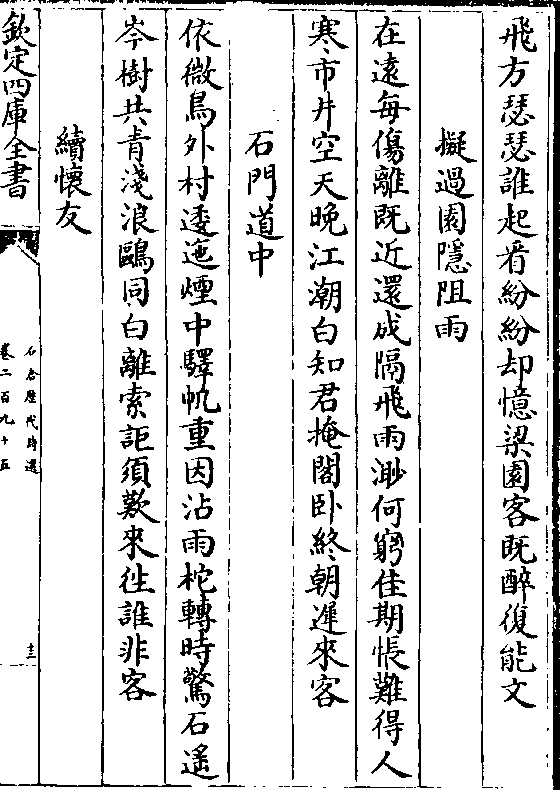 飛方瑟瑟誰起看紛紛却憶梁園客既醉復能文
擬過園隱阻雨
在遠每傷離既近還成隔飛雨渺何窮佳期悵難得人
寒市井空天晚江潮白知君掩閣卧終朝遲來客
石門道中
依微鳥外村逶迤煙中驛帆重因沾雨柁轉時驚石遥
岑樹共青淺浪鷗同白離索詎須歎來徃誰非客
續懷友
欽定四庫全書
石倉歴代詩選
卷二百九十五
十三